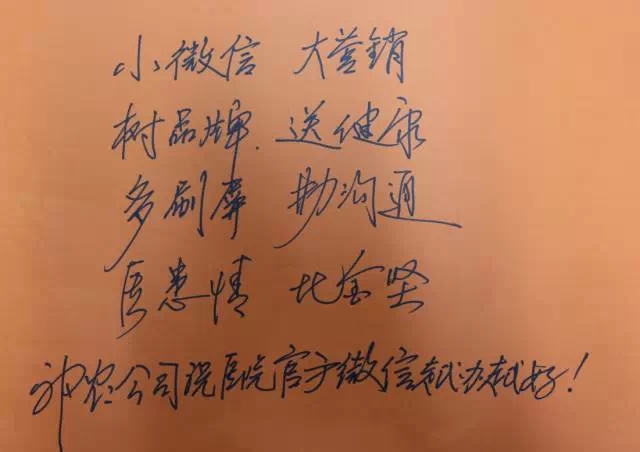 小微信 大营销
树品牌.送健康
多刷屏 助沟通
医患情 比金坚
神农公司说医院官方微信越办越好!